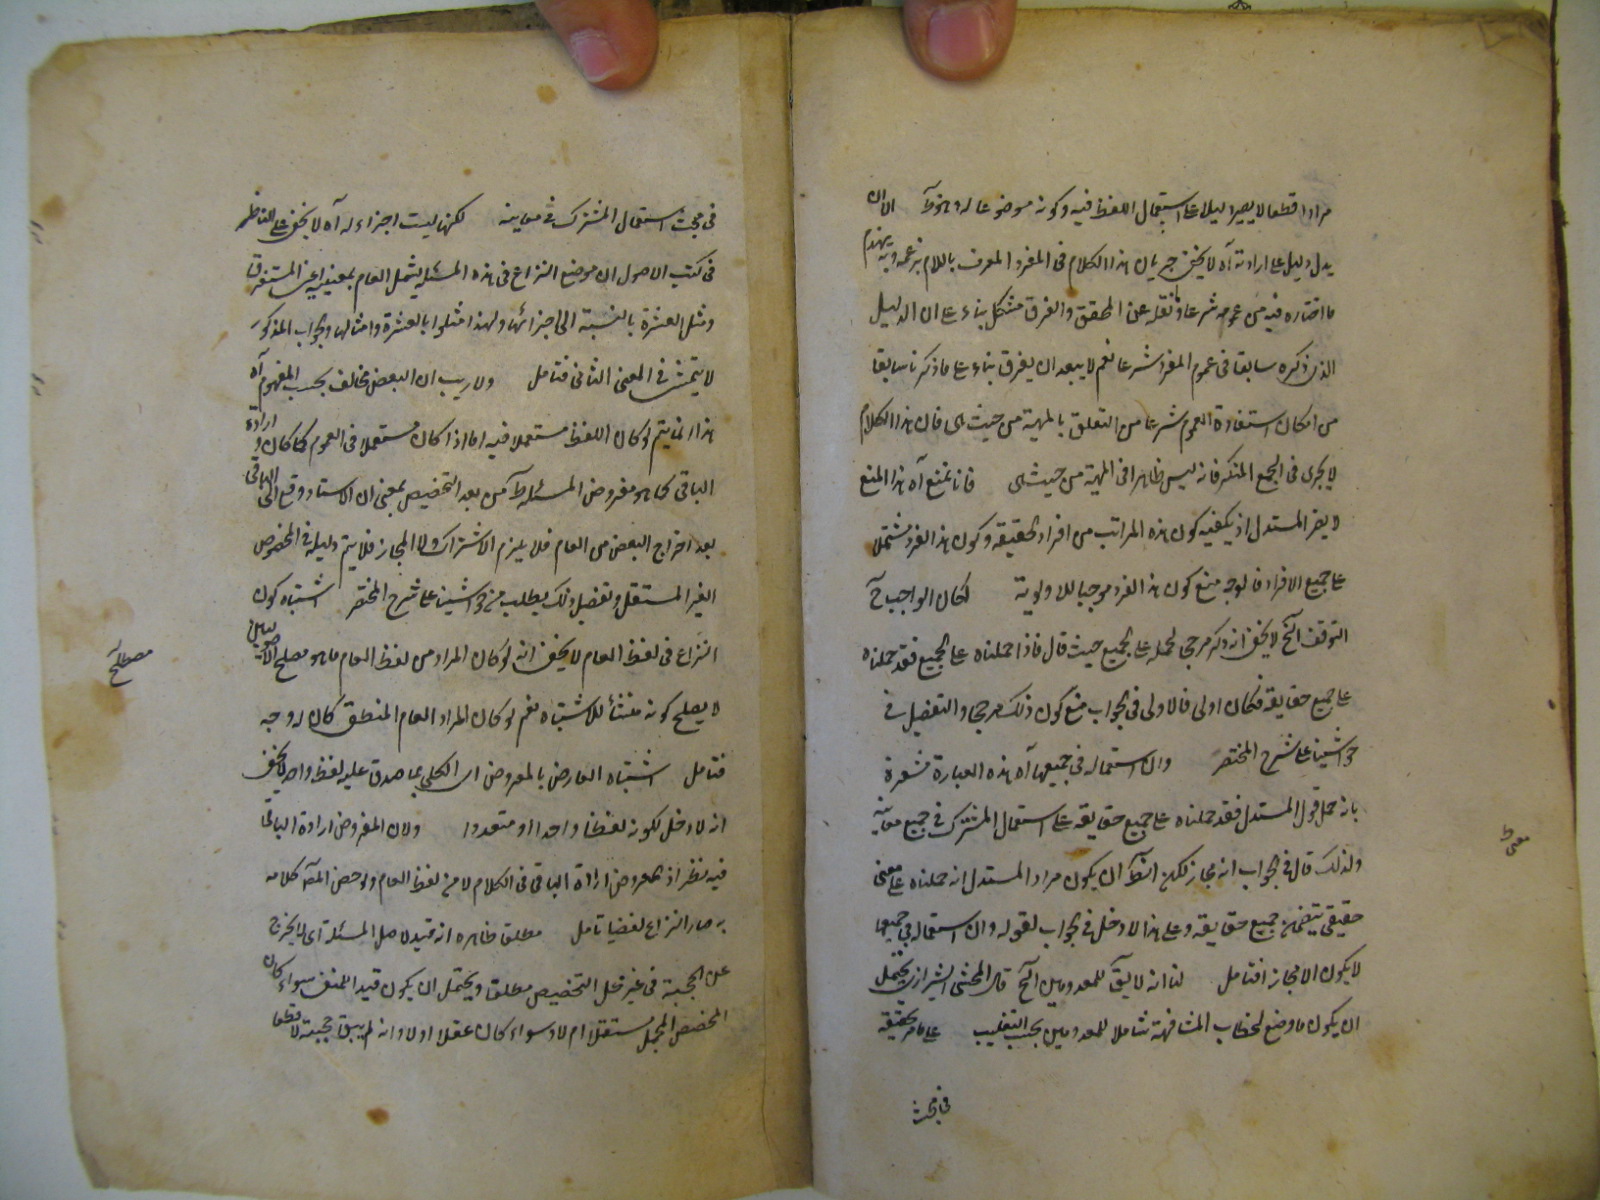 مرادا قطعا لا يصير دليلا على استعمال اللفظ فيه وكونه موضوعا له وهو ظ الا ان
يدل دليل على ارادته آه لا يخفى جريان هذا الكلام في المفرد المعرف باللام بزعمه وبه ينهدم
ما اختاره فيه من عمومه شرعا ونقله عن المحقق والفرق مشكل بناء على ان الدليل
الذى ذكره سابقا في عموم المفرد شرعا نعم لا يبعد ان يفرق بناء على ما ذكرنا سابقا
من امكان استفادة العموم شرعا من التعلق بالمهية من حيث هى فان هذا الكلام
لا يجرى في الجمع المنكر فانه ليس ظاهرا في المهية من حيث هى فانا نمنع آه هذا المنع
لا يضر المستدل اذ يكفيه كون هذه المراتب من افراد الحقيقة وكون هذا الفرد مشتملا
على جميع الافراد فالوجه منع كون هذا الفرد موجبا للاولوية لكان الواجب ح
التوقف الخ لا يخفى انه ذكر مرجحا لحمله على الجميع حيث قال فاذا حملناه على الجميع فقد حملناه
على جميع حقايقه فكان اولى فالاولى في الجواب منع كون ذلك مرجحا والتفصيل في
حواشينا على شرح المختصر والا استعماله في جميعها آه هذه العبارة مشعرة
بانه حمل قول المستدل فقد حملناه على جميع حقايقه على استعمال المشترك في جميع معانيه
ولذلك قال في الجواب انه مجاز لكن الظ ان يكون مراد المستدل انه حملناه على معنى
حقيقي يتضمن جميع حقايقه وعلى هذا لا دخل في الجواب لقوله والا استعماله في جميعها
لا يكون الا مجازا فتامل لنا انه لا يق للمعدومين الخ قال المحشى الشيرازى يحتمل
ان يكون ما وضع لخطاب المشافهة شاملا للمعدومين بحسب التغليب على ما مر تحقيقه
معنى ظ
في مبحث
في مبحث استعمال المشترك في معانيه لكنها ليست اجزاء له آه لا يخفى على الناظر
في كتب الاصول ان موضع النزاع في هذه المسئلة يشمل العام بمعنييه اعنى المستغرق
ومثل العشرة بالنسبة الى اجزائها ولهذا مثلوا بالعشرة وامثالها والجواب المذكور
لا يتمشى في المعنى الثانى فتامل ولا ريب ان البعض مخالف بحسب المفهوم آه
هذا انما يتم لو كان اللفظ مستعملا فيه اما اذا كان مستعملا في العموم كما كان وارادة
الباقى كما هو مفروض المسئلة ظ من بعد التخصيص بمعنى ان الاسناد وقع الى الباقى
بعد اخراج البعض من العام فلا يلزم الاشتراك ولا المجاز فلا يتم دليله في المخصوص
الغير المستقل وتفصيل ذلك يطلب من حواشينا على شرح المختصر اشتباه كون
النزاع في لفظ العام لا يخفى انه لو كان المراد من لفظ العام ما هو مصطلح الاصوليين
لا يصلح كونه منشأ للاشتباه نعم لو كان المراد العام المنطقى كان له وجه
فتامل اشتباه العارض بالمعروض اى الكلى بما صدق عليه لفظ واحد لا يخفى
انه لا دخل لكونه لفظا واحدا او متعددا ولان المفروض ارادة الباقى
فيه نظر اذ المعروض ارادة الباقى في الكلام لا من لفظ العام ولو خص المص كلامه
به صار النزاع لفظيا تامل مطلقا ظاهره انه قيد لاصل المسئلة اى لا يخرج
عن الحجية في غير محل التخصيص مطلقا ويحتمل ان يكون قيدا للمنفى سواء كان
المخصص المجمل مستقلا ام لا وسواء كان عقلا او لا وانه لم يبق حجية لا قطعا
مصطلح